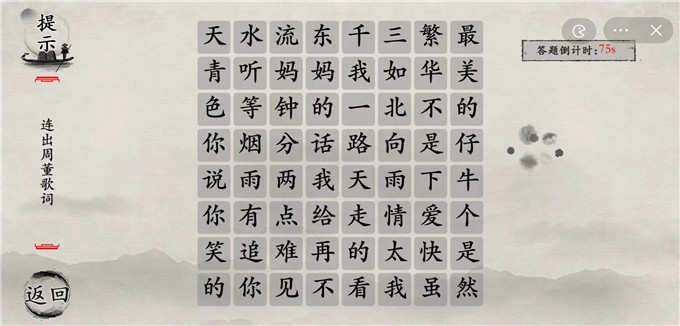 提示
答题倒计时:75s
连出周董歌词
天水流东千三繁最
青听妈妈我如华美
色等钟的一北不的
你烟分话路向是仔
说雨两我天雨下牛
你有点给走情爱个
笑追难再的太快是
的你见不看我虽然
返回